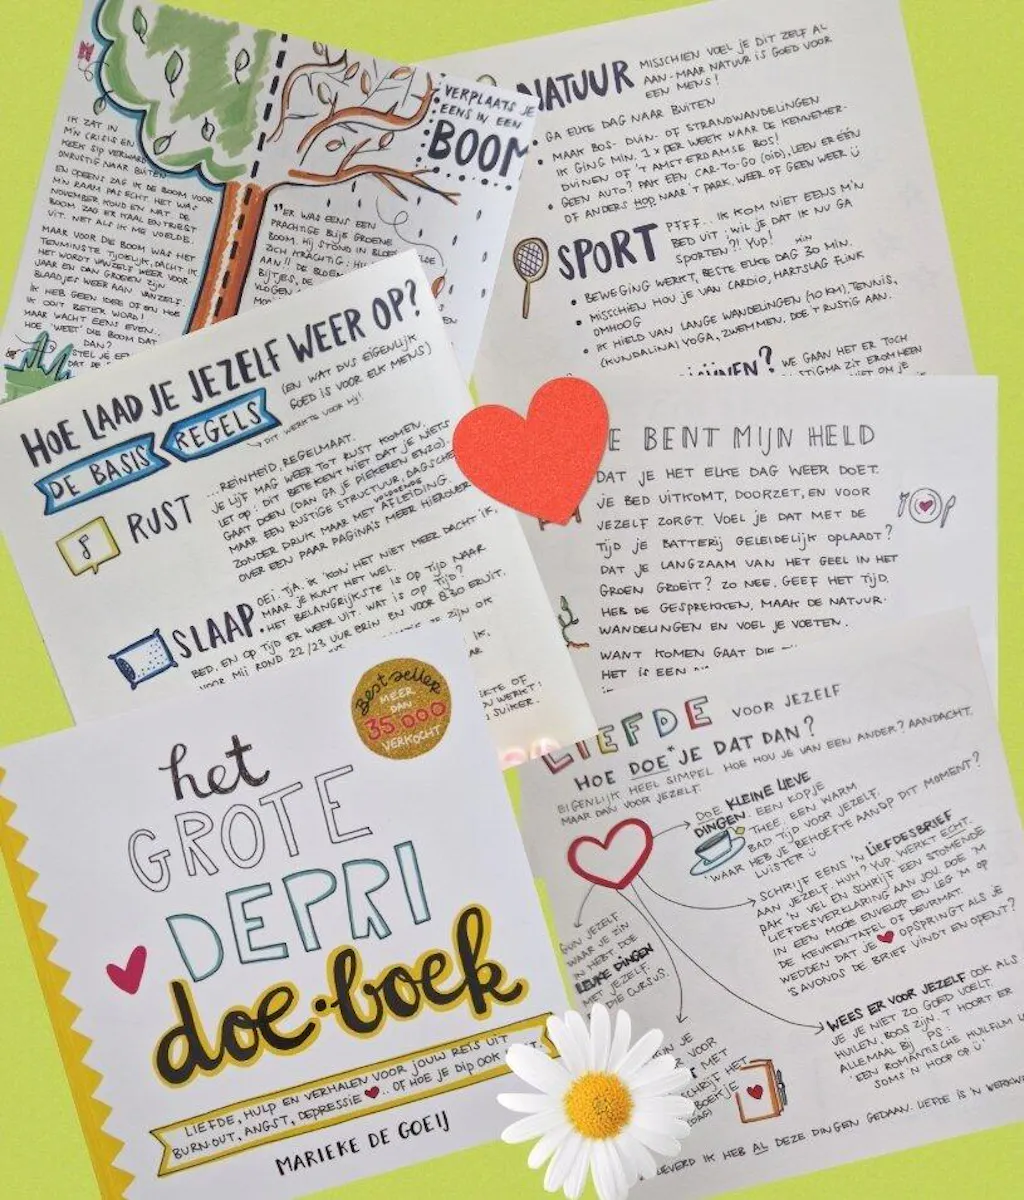 IK ZAT IN
M'N CRISIS EN
KEEK SIP VERWARD
ONRUSTIG NAAR BUITEN
EN OPEENS ZAG IK DE BOOM VOOR
M'N RAAM PAS ECHT. HET WAS
NOVEMBER KOUD EN NAT. DE
BOOM ZAG ER KAAL EN TRIEST
UIT. NET ALS IK ME VOELDE.
MAAR VOOR DIE BOOM WAS HET
TENMINSTE TIJDELIJK, DACHT IK
HET WORDT VANZELF WEER VOOR
JAAR EN DAN GROEIEN ZIJN
BLAADJES WEER AAN. VANZELF.
IK HEB GEEN IDEE OF EN HOE
IK OOIT BETER WORD!
MAAR WACHT EENS EVEN..
HOE 'WEET' DIE BOOM DAT
DAN?
STEL JE EE
DAT DE
VERPLAATS JE
EENS IN EEN
BOOM
"ER WAS EENS EEN
PRACHTIGE BLIJE GROENE
BOOM. HIJ STOND IN BLOE
ZICH KRACHTIG: HI
AAN!! DE BLOE
BIJTJES, DE
VLOGEN
NATUUR
MISSCHIEN VOEL JE DIT ZELF AL
AAN - MAAR NATUUR IS GOED VOOR
EEN MENS!
GA ELKE DAG NAAR BUITEN
• MAAK BOS- DUIN- OF STRANDWANDELINGEN
IK GING MIN. 1 X PER WEEK NAAR DE KENNEMER-
DUINEN OF 'T AMSTERDAMSE BOS!
• GEEN AUTO? PAK EEN CAR-TO-GO (OID), LEEN ER ÉÉN
OF ANDERS HOP NAAR 'T PARK. WEER OF GEEN WEER Ü
SPORT
PFFF... IK KOM NIET EENS M'N
BED UIT: WIL JE DAT IK NU GA
SPORTEN ?! YUP!
• BEWEGING WERKT, BESTE ELKE DAG MIN 30 MIN.
• MISSCHIEN HOU JE VAN CARDIO, HARTSLAG FLINK
OMHOOG
• IK HIELD VAN LANGE WANDELINGEN (10 KM), TENNIS,
(KUNDALINI) YOGA, ZWEMMEN. DOE 'T RUSTIG AAN.
WE GAAN HET ER TOCH
STIGMA ZIT EROMHEEN
HOE LAAD JE JEZELF WEER OP?
DE BASIS REGELS
(EN WAT DUS EIGENLIJK
GOED IS VOOR ELK MENS)
DIT WERKTE VOOR MIJ!
RUST
...REINHEID, REGELMAAT.
JE LIJF MAG WEER TOT RUST KOMEN.
LET OP: DIT BETEKENT NIET DAT JE NIETS
GAAT DOEN (DAN GA JE PIEKEREN ENZO).
MAAR EEN RUSTIGE STRUCTUUR, DAGSCHE
ZONDER DRUK MAAR MET VOLDOENDE AFLEIDING.
OVER EEN PAAR PAGINA'S MEER HIEROVER
SLAAP.
OEI. TJA. IK KON HET NIET MEER DACHT IK,
MAAR JE KUNT HET WEL.
• HET BELANGRIJKSTE IS OP TIJD NAAR
BED, EN OP TIJD ER WEER UIT. WAT IS OP TIJD?
VOOR MIJ ROND 22/23 UUR ERIN EN VOOR 8.30 ERUIT.
EKTE OF
N WERKT!
SUIKER.
JE BENT MIJN HELD
DAT JE HET ELKE DAG WEER DOET.
JE BED UITKOMT, DOORZET, EN VOOR
JEZELF ZORGT. VOEL JE DAT MET DE
TIJD JE BATTERIJ GELEIDELIJK OPLAADT?
DAT JE LANGZAAM VAN HET GEEL IN HET
GROEN GROEIT? ZO NEE, GEEF HET TIJD,
HEB DE GESPREKKEN, MAAK DE NATUUR-
WANDELINGEN EN VOEL JE VOETEN.
WANT KOMEN GAAT DIE
HET IS EEN
LIEFDE VOOR JEZELF
HOE "DOE" JE DAT DAN?
EIGENLIJK HEEL SIMPEL HOE HOU JE VAN EEN ANDER? AANDACHT.
MAAR DAN VOOR JEZELF.
DOE KLEINE LIEVE
DINGEN. EEN KOPJE
THEE EEN WARM
BAD TIJD VOOR JEZELF.
WAAR HEB JE BEHOEFTE AAN OP DIT MOMENT?
LUISTER Ü
SCHRIJF EENS 'N LIEFDESBRIEF
AAN JEZELF. HUH? YUP. WERKT ECHT.
PAK 'N VEL EN SCHRIJF EEN STOMENDE
LIEFDESVERKLARING AAN JOU. DOE 'M
IN EEN MOOIE ENVELOP EN LEG 'M OP
DE KEUKENTAFEL OF DEURMAT.
WEDDEN DAT JE ♥ OPSPRINGT ALS JE
'S AVONDS DE BRIEF VINDT EN OPENT?
GUN JEZELF
WAAR JE ZIN
IN HEBT. DOE
LEUKE DINGEN
MET JEZELF.
DIE CURSUS.
WEES ER VOOR JEZELF OOK ALS
JE JE NIET ZO GOED VOELT.
HUILEN, BOOS ZIJN 'T HOORT ER
ALLEMAAL BIJ. PS:
'EEN ROMANTISCHE HUILFILM
SOMS 'N HOOP OP Ü'
N JE
VOOR
T MET
SCHRIJF HET
BOEKJE
LIEVERD IK HEB AL DEZE DINGEN GEDAAN. LIEFDE IS 'N WERKW
Bestseller
MEER
DAN
35.000
VERKOCHT
het
GROTE
DEPRI
doe-boek
LIEFDE, HULP EN VERHALEN VOOR JOUW REIS UIT
BURN-OUT, ANGST, DEPRESSIE ♥.. OF HOE JE DIP OOK
MARIEKE DE GOEIJ